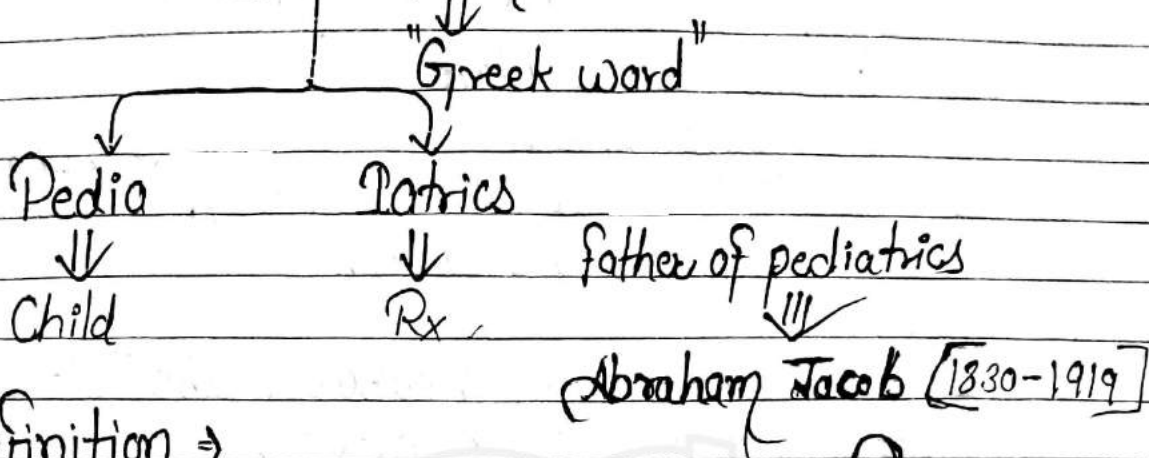 "Greek word"
Pedia Iatrics
father of pediatrics
Child Rx
Abraham Jacob [1830-1919]
finition ⇒